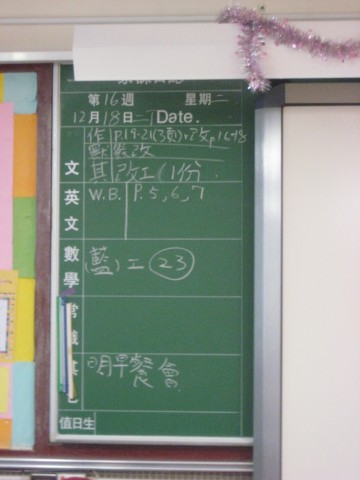 第16週 星期二
12月18日 二 Date.
作 P.19-21(3頁)+改P.16-18
改
文 其 改工(1份)
英文 W.B. P.5,6,7
數學 (藍)工 23
常識
其 明早餐會
值日生